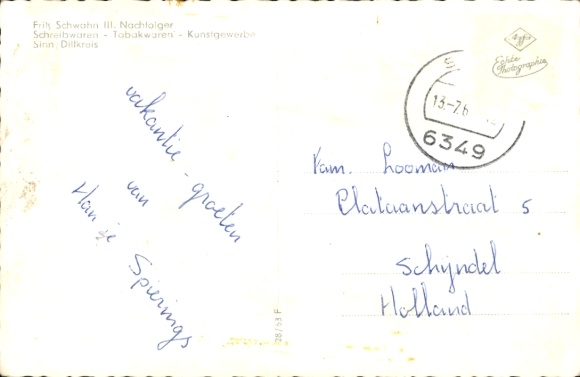 Fritz Schwahn III. Nachfolger
Schreibwaren - Tabakwaren - Kunstgewerbe
Sinn/Dillkreis
Agfa
Echte
Photographie
13.-7.6
6349
vakantie - groeten
van
Hansje Spierings
Fam. Looman
Plataanstraat 5
Schijndel
Holland
28/63 F